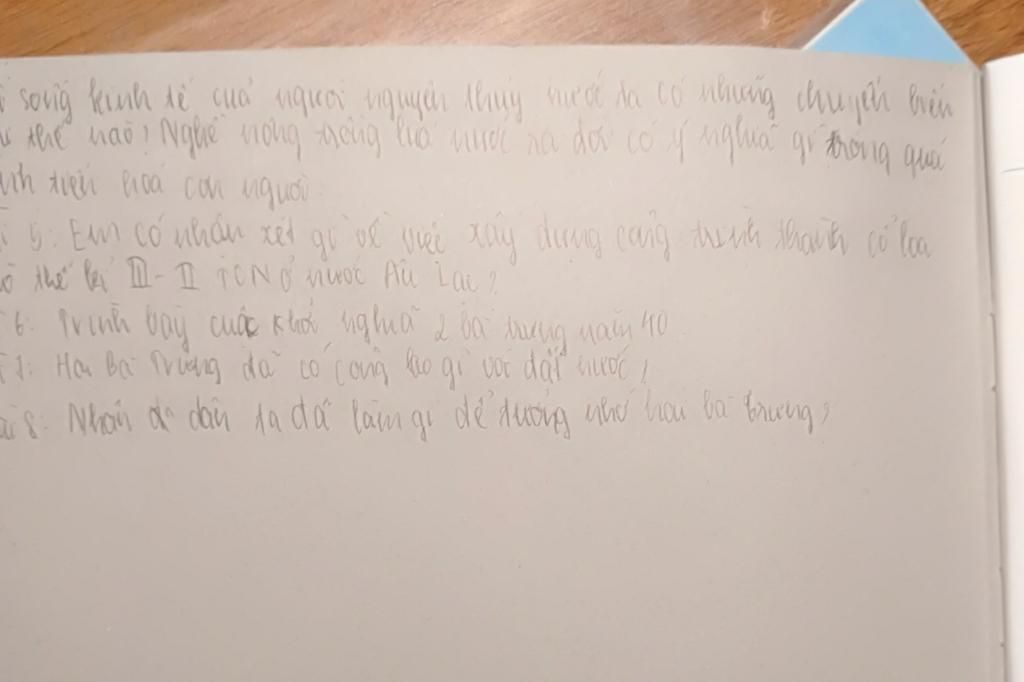 sống kinh tế của người nguyên thủy nước ta có những chuyển biến
thế nào? Nghề nông trồng lúa nước ra đời có ý nghĩa gì trong quá
tiến hoá con người
5: Em có nhận xét gì về việc xây dựng công trình thành cổ loa
thế kỉ III - II TCN ở nước Âu Lạc?
6: Trình bày cuộc khởi nghĩa 2 bà trưng năm 40
7: Hai Bà Trưng đã có công lao gì với đất nước?
8: Nhân dân ta đã làm gì để tưởng nhớ hai bà trưng?